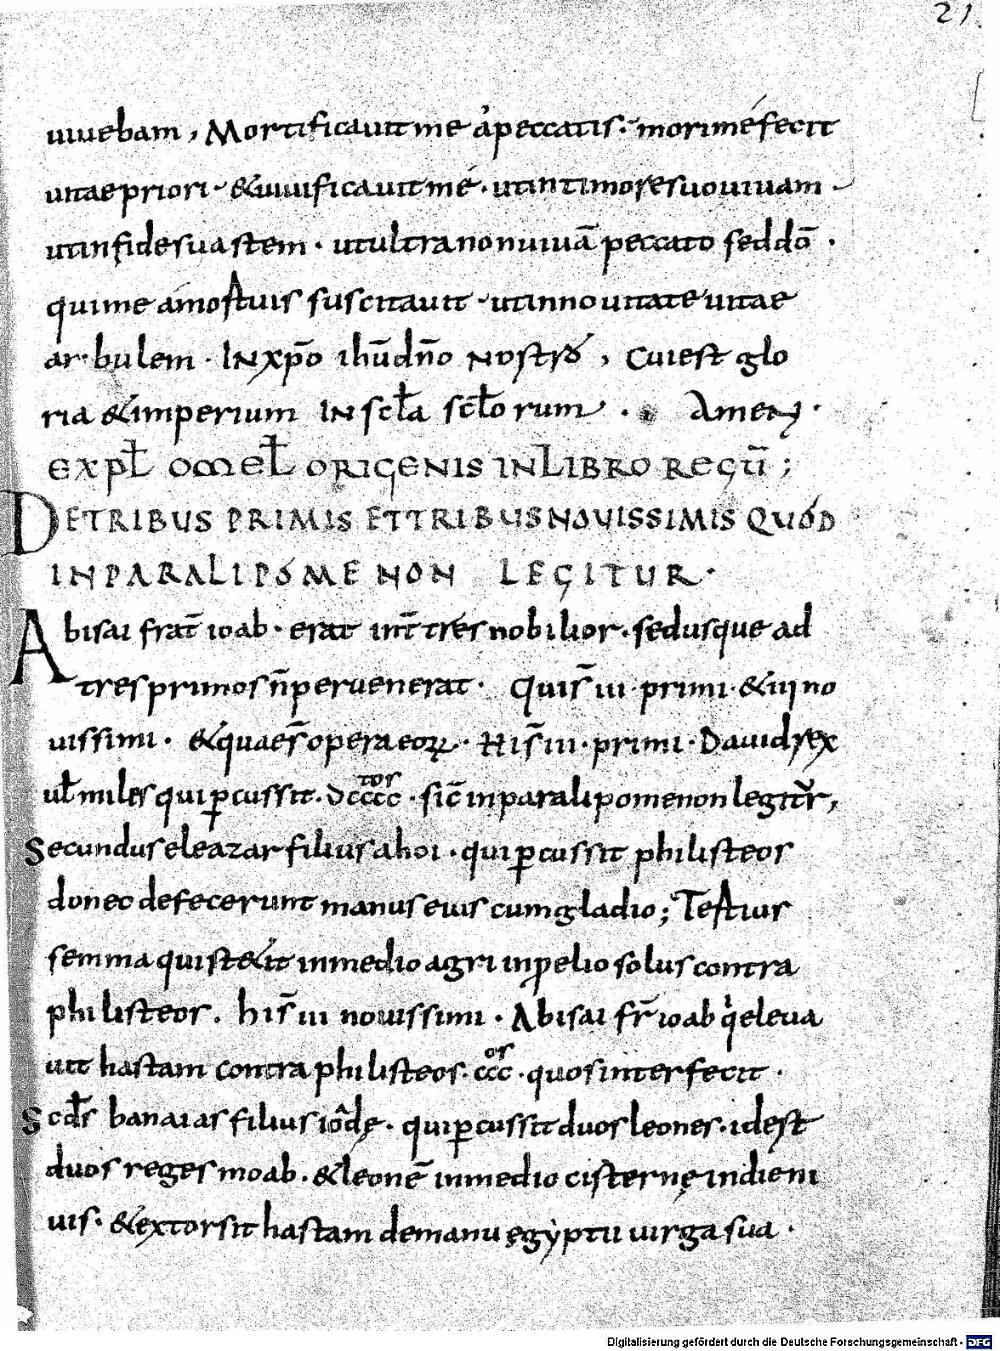 21
uiuebam, Mortificauit me a peccatis. mori me fecit
uitae priori. & uiuificauit me. ut in timore suo uiuam
ut in fide sua stem. ut ultra non uiuā peccato sed dō.
qui me a mortuis suscitauit. ut in nouitate uitae
ambulem. IN xp̄o ihū dn̄o nostro, Cui est glo
ria & imperium IN scl̄a scl̄orum. Amen.
EXPL̄ OMEL̄ ORIGENIS IN LIBRO REGŪ;
DE TRIBUS PRIMIS ET TRIBUS NOUISSIMIS QUOD
IN PARALIPOMENON LEGITUR.
Abisai frat̄ ioab. erat int̄ tres nobilior. sed usque ad
tres primos n̄ peruenerat. Quis̄ iii primi. & iii no
uissimi. & quae s̄ opera eoꝝ. His̄ iii. primi. Dauid rex
ul̄ miles qui ꝑcussit. dcccc tos. sic̄ in paralipomenon legit̄r,
Secundus eleazar filius ahoi. qui ꝑcussit philisteos
donec defecerunt manus eius cum gladio; Tertius
semma qui stetit in medio agri in p̄elio solus contra
philisteos. his̄ iii nouissimi. Abisai fr̄ ioab qi eleua
uit hastam contra philisteos. ccc os. quos interfecit.
Scd̄s banaias filius ioadę. qui ꝑcussit duos leones. id est
duos reges moab. & leonē in medio cisternę in die ni
uis. & extorsit hastam de manu ęgyptii uirga sua.
Digitalisierung gefördert durch die Deutsche Forschungsgemeinschaft - DFG